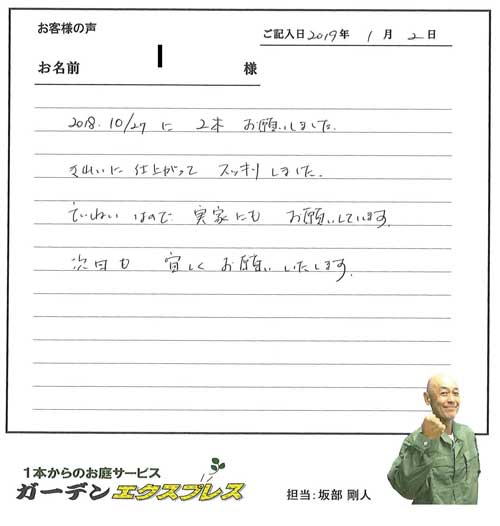 お客様の声
ご記入日 2019年 1月 2日
お名前 様
2018.10/27に 2本 お願いしました.
きれいに仕上がって スッキリしました.
ていねいなので 実家にも お願いしています.
次回も 宜しくお願いいたします.
1本からのお庭サービス
ガーデンエクスプレス
担当:坂部 剛人